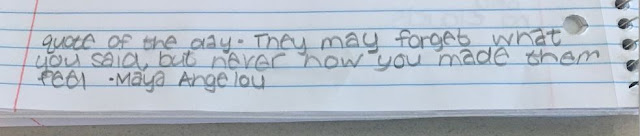 quote of the day - They may forget what
you said, but never how you made them
feel - Maya Angelou